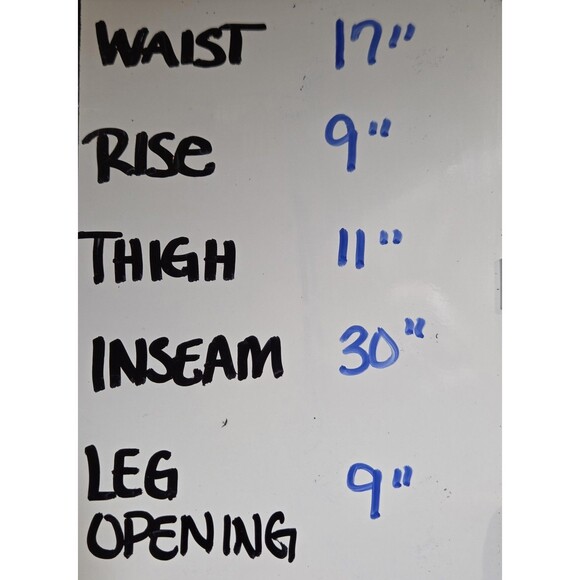 WAIST 17"
RISe 9"
THIGH 11"
INSEAM 30"
LEG
OPENING 9"